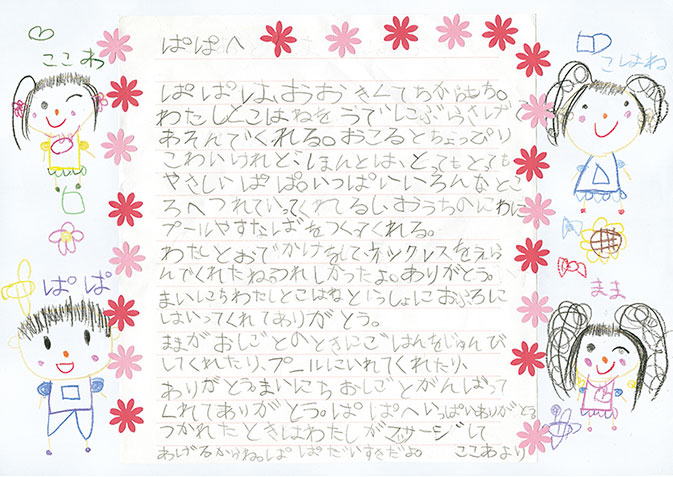 ぱぱへ
ここあ
こはね
ぱぱは、おうおきくてちからもち。
わたしとこはねをうでにぶらさげ
あそんでくれる。おこるとちょっぴり
こわいけれど、ほんとは、とってもとっても
やさしいぱぱ。いっぱいいろんなとこ
ろへつれていってくれるし、おうちのにわに
プールやすなばをつくってくれる。
わたしとおでかけをしてネックレスをえら
んでくれたねうれしかったよ。ありがとう。
まいにちわたしとこはねといっしょにおふろに
はいってくれてありがとう。
ままがおしごとのときにごはんをじゅんび
してくれたり、プールにいれてくれたり、
ありがとうまいにちおしごとがんばって
くれてありがとう。ぱぱへいっぱいありがとう
つかれたときはわたしがマッサージして
あげるからね。ぱぱだいすきだよ。 ここあより
ぱぱ
まま